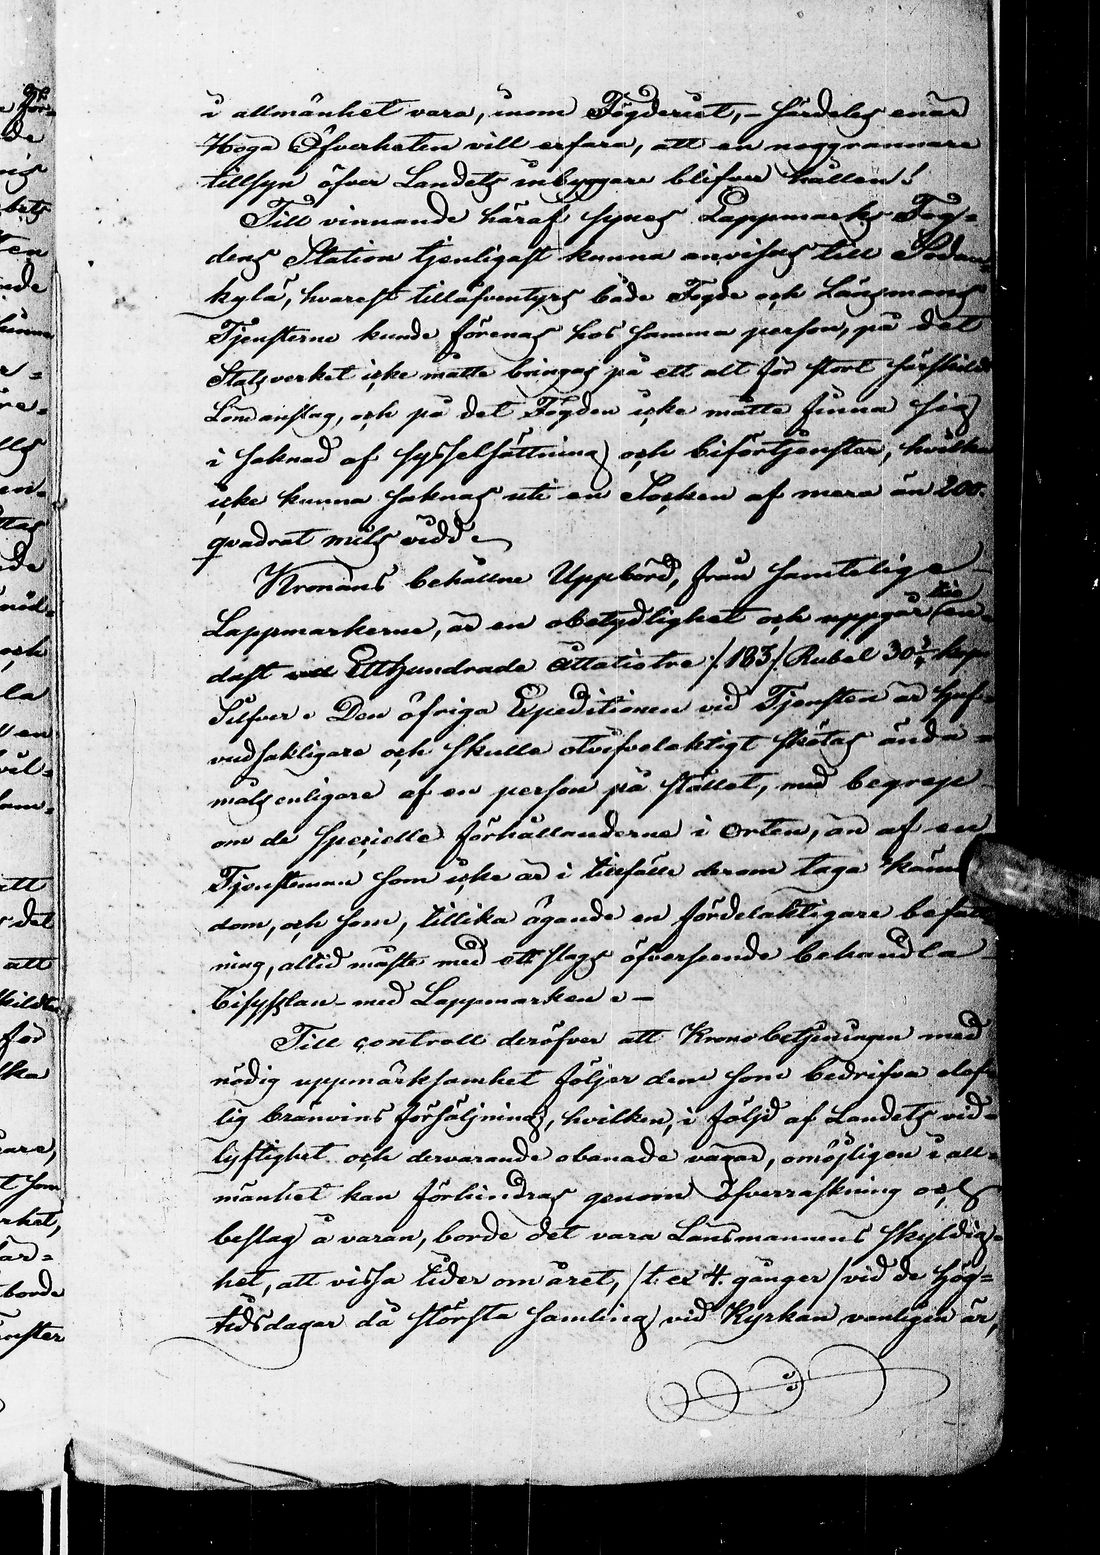 i allmänhet vara, inom Fögderiet, - särdeles enär
Höga Öfverheten vill erfara, att en noggrannare
tillsyn öfver Landets inbyggare blifver hållen!
Till vinnande häraf synes Lappmarks Fog-
dens Station tjenligast kunna anvisas till Sodan-
kylä, hvarest tilläfventyrs både Fogde och Länsmans
Tjensterne kunde förenas hos samma person, på det
Statsverket icke måtte bringas på ett alt för stort särskildt
Löneanslag, och på det Fogden icke måtte finna sig
i saknad af sysselsättning och biförtjenster, hvilka
icke kunna saknas uti en Socken af mera än 200.
quadrat mils vidd.
Kronans behållne Uppbörd, från samtelige
Lappmarkerne, är en obetydlighet och uppgår till en-
dast Etthundrade åttatiotre /.183/. Rubel 30 kop.
Silfver. Den öfriga Expeditionen vid Tjensten är huf-
vudsakligare och skulle otvifvelaktigt skötas ända-
målsenligare af en person på stället, med begrepp
om de speciella förhållanderne i Orten, än af en
Tjensteman som icke är i tillfälle derom taga känne-
dom, och som, tillika ägande en fördelaktigare befatt-
ning, altid måste med ett slags öfverseende behandla
bisysslan med Lappmarken. -
Till controll deröfver att Kronobetjeningen med
nödig uppmärksamhet följer dem som bedrifva olof-
lig bränvins försäljning, hvilken, i följd af Landets vid-
lyftighet och dervarande obanade vägar, omöjligen i all-
mänhet kan förhindras genom öfverraskning och
beslag å varan, borde det vara Länsmannens skyldig-
het, att vissa tider om året, /t. ex 4. gånger/ vid de hög-
tidsdagar då största samling vid Kyrkan vanligen är,